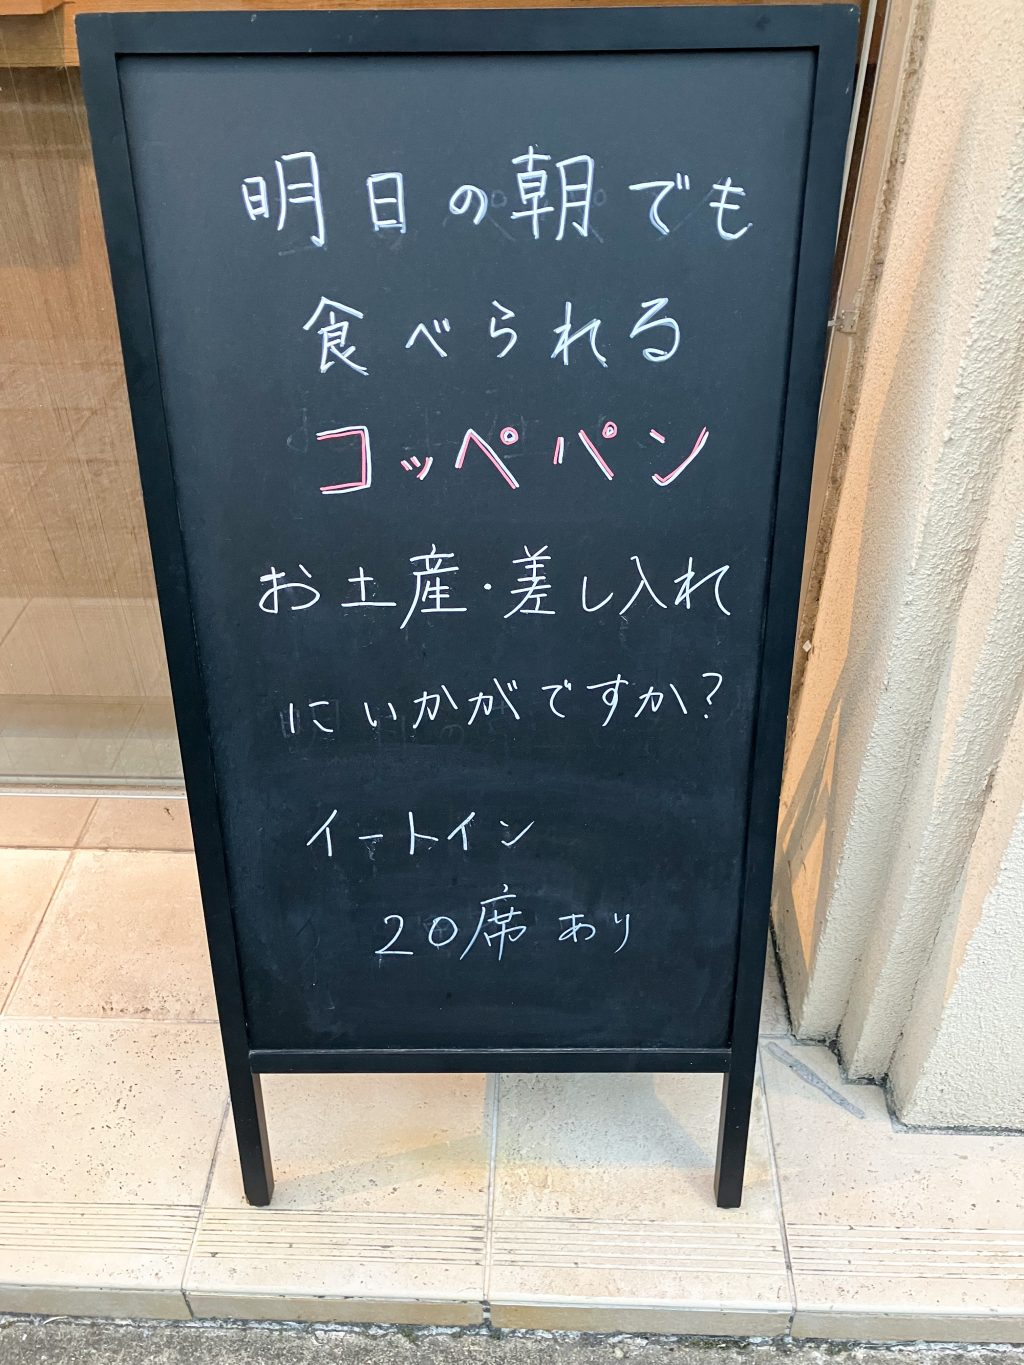 明日の朝でも
食べられる
コッペパン
お土産・差し入れ
にいかがですか?
イートイン
20席あり